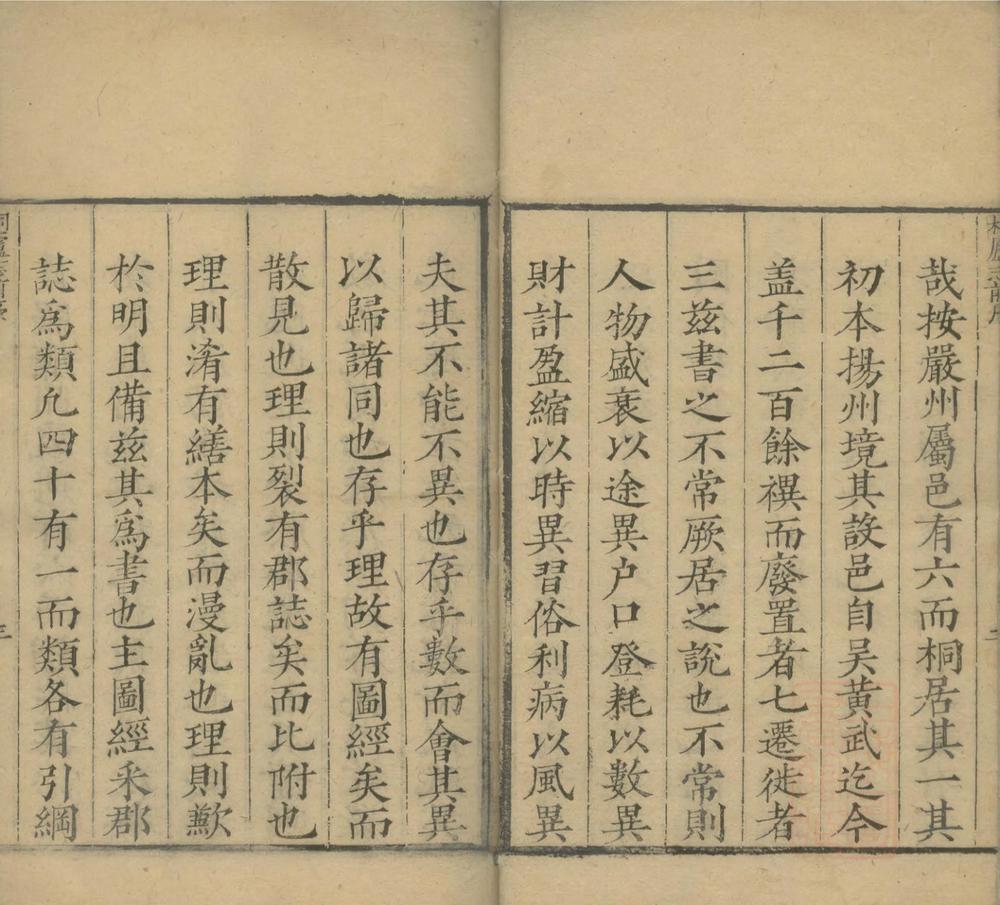 哉按嚴州屬邑有六而桐居其一其
初本揚州境其設邑自吴黃武迄今
盖千二百餘禩而廢置者七遷徙者
三兹書之不常厥居之說也不常則
人物盛衰以途異户口登耗以數異
財計盈縮以時異習俗利病以風異
夫其不能不異也存乎數而會其異
以歸諸同也存乎理故有圖經矣而
散見也理則裂有郡誌矣而比附也
理則淆有繕本矣而漫亂也理則歉
於明且備兹其爲書也主圖經釆郡
誌爲類凢四十有一而類各有引綱